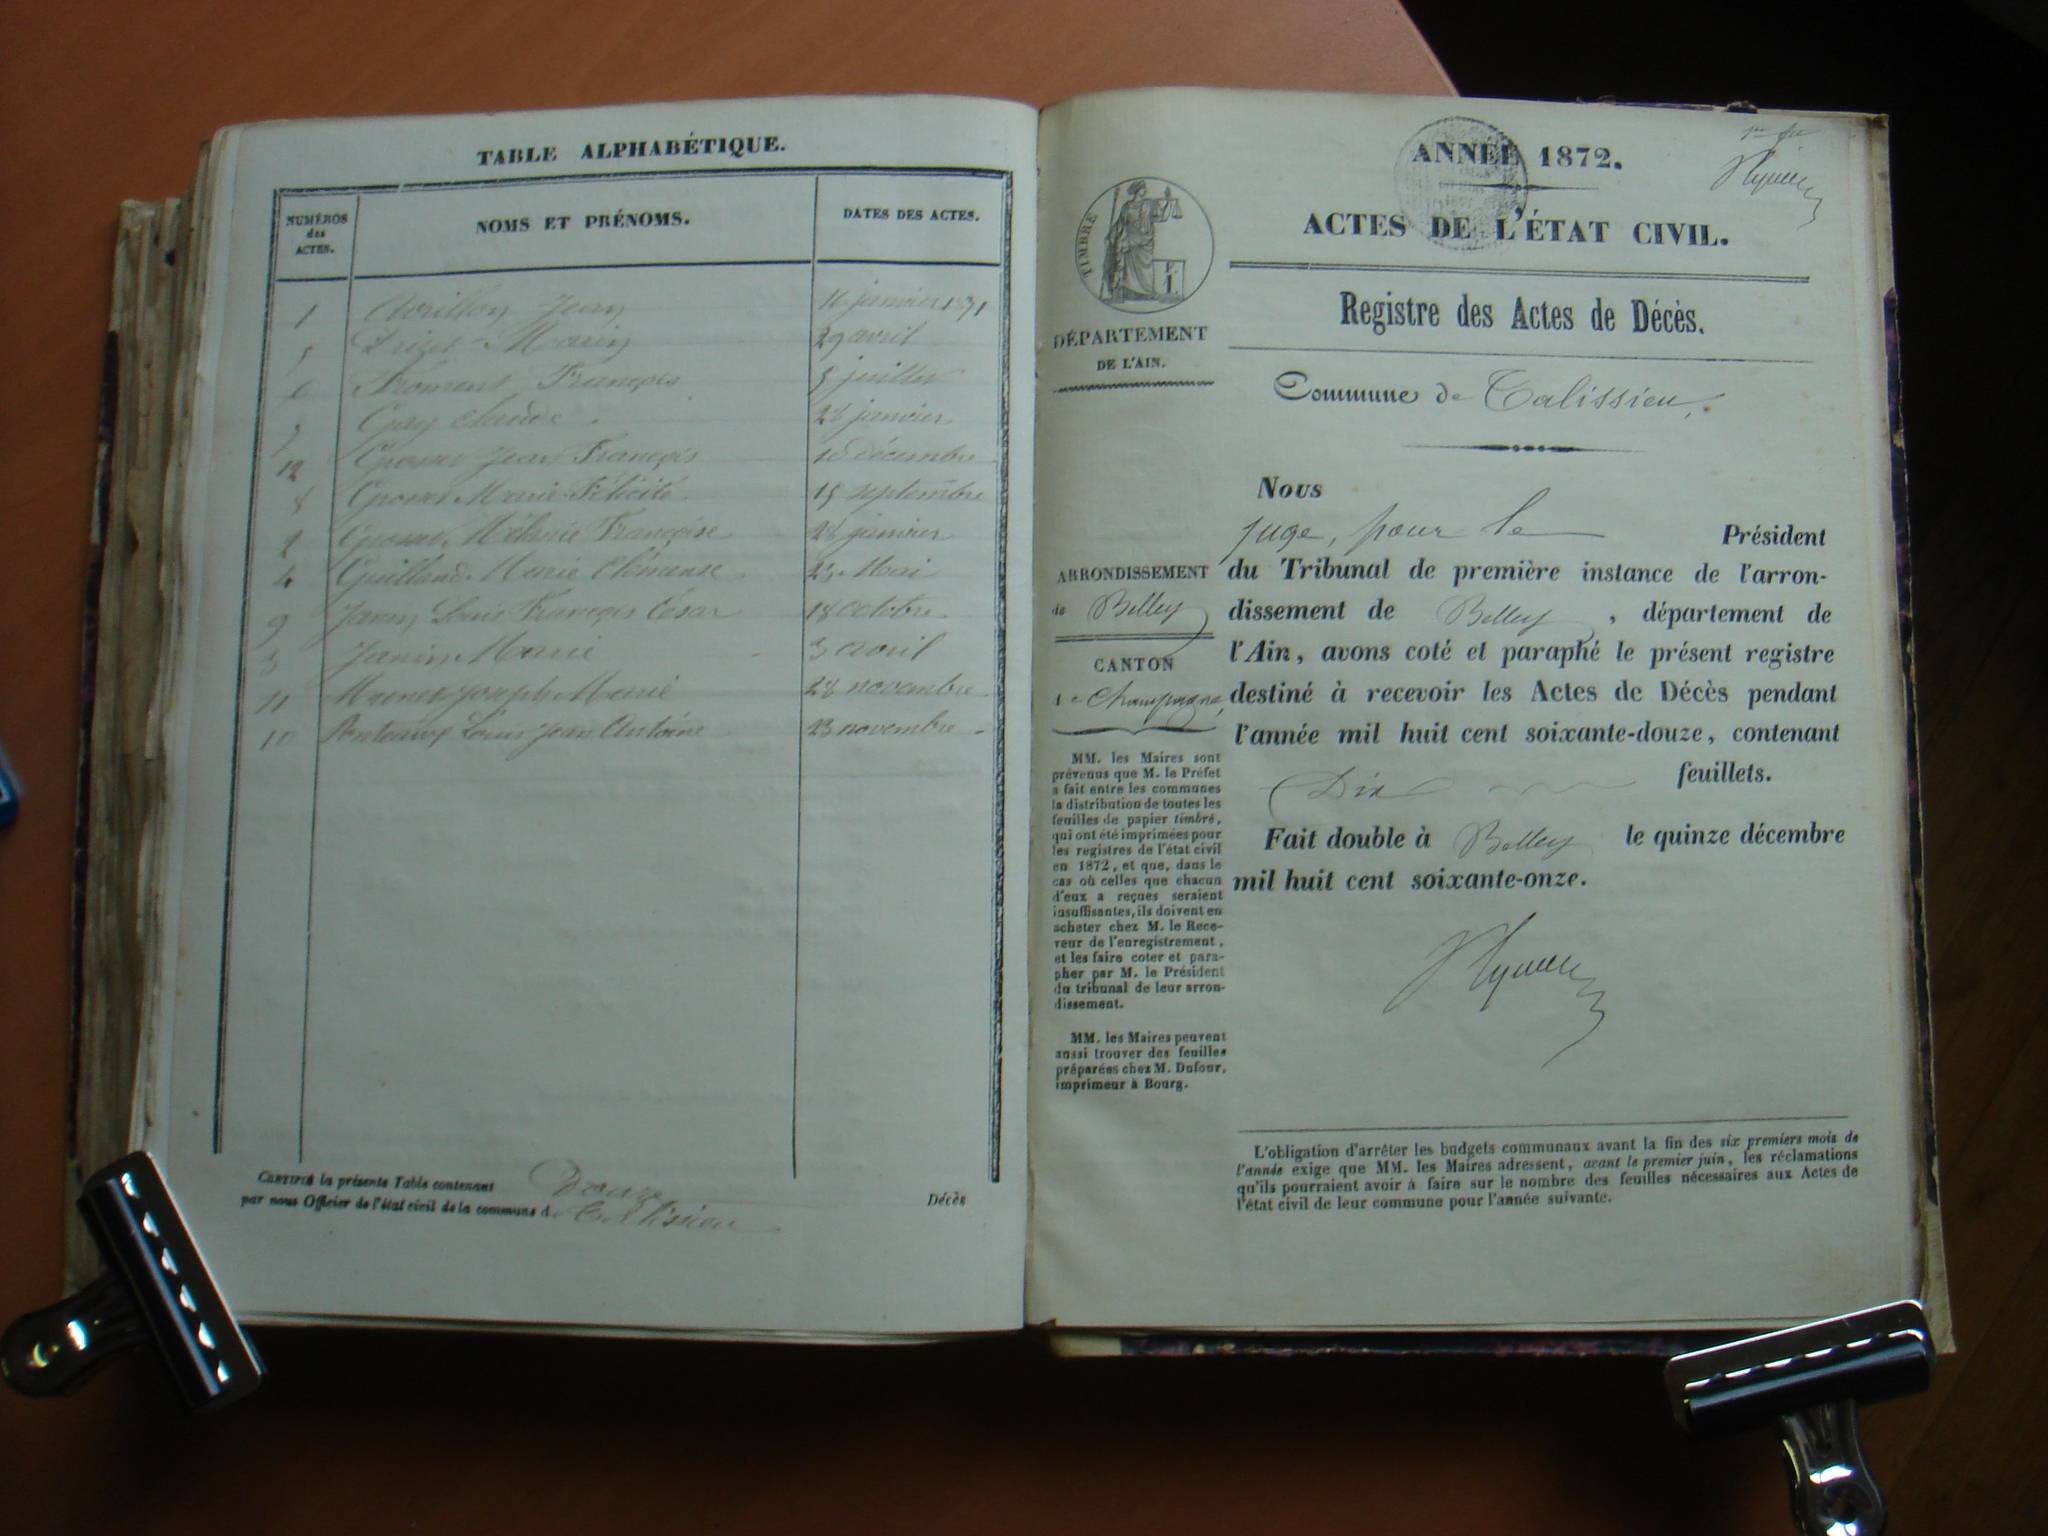 TABLE ALPHABÉTIQUE.
NUMÉROS
des
ACTES.
NOMS ET PRÉNOMS.
DATES DES ACTES.
1 Avrillon Jean 16 janvier 1871
5 Marin 29 avril
6 Froment François 5 juillet
Gay Claude 28 janvier
12 Jean François 10 décembre
8 Marie Félicité 15 septembre
2 Mélanie Françoise 28 janvier
4 Guilland Marie Clémense 23 Mai
9 Janin Louis François César 18 octobre
3 Janin Marie 3 avril
11 Joseph Marie 28 novembre
10 Louis Jean Antoine 23 novembre
CERTIFIÉ la présente Table contenant Douze Décès
par nous Officier de l'état civil de la commune d Talissieu
ANNÉE 1872.
ACTES DE L'ÉTAT CIVIL.
TIMBRE
Registre des Actes de Décès.
DÉPARTEMENT
DE L'AIN.
Commune de Talissieu,
Nous
juge, pour le Président
du Tribunal de première instance de l'arron-
dissement de Belley, département de
l'Ain, avons coté et paraphé le présent registre
destiné à recevoir les Actes de Décès pendant
l'année mil huit cent soixante-douze, contenant
Dix feuillets.
Fait double à Belley le quinze décembre
mil huit cent soixante-onze.
ARRONDISSEMENT
de Belley
CANTON
de Champagne,
MM. les Maires sont
prévenus que M. le Préfet
a fait entre les communes
la distribution de toutes les
feuilles de papier timbré,
qui ont été imprimées pour
les registres de l'état civil
en 1872, et que, dans le
cas où celles que chacun
d'eux a reçues seraient
insuffisantes, ils doivent en
acheter chez M. le Rece-
veur de l'enregistrement,
et les faire coter et para-
pher par M. le Président
du tribunal de leur arron-
dissement.
MM. les Maires peuvent
aussi trouver des feuilles
préparées chez M. Dufour,
imprimeur à Bourg.
L'obligation d'arrêter les budgets communaux avant la fin des six premiers mois de
l'année exige que MM. les Maires adressent, avant le premier juin, les réclamations
qu'ils pourraient avoir à faire sur le nombre des feuilles nécessaires aux Actes de
l'état civil de leur commune pour l'année suivante.